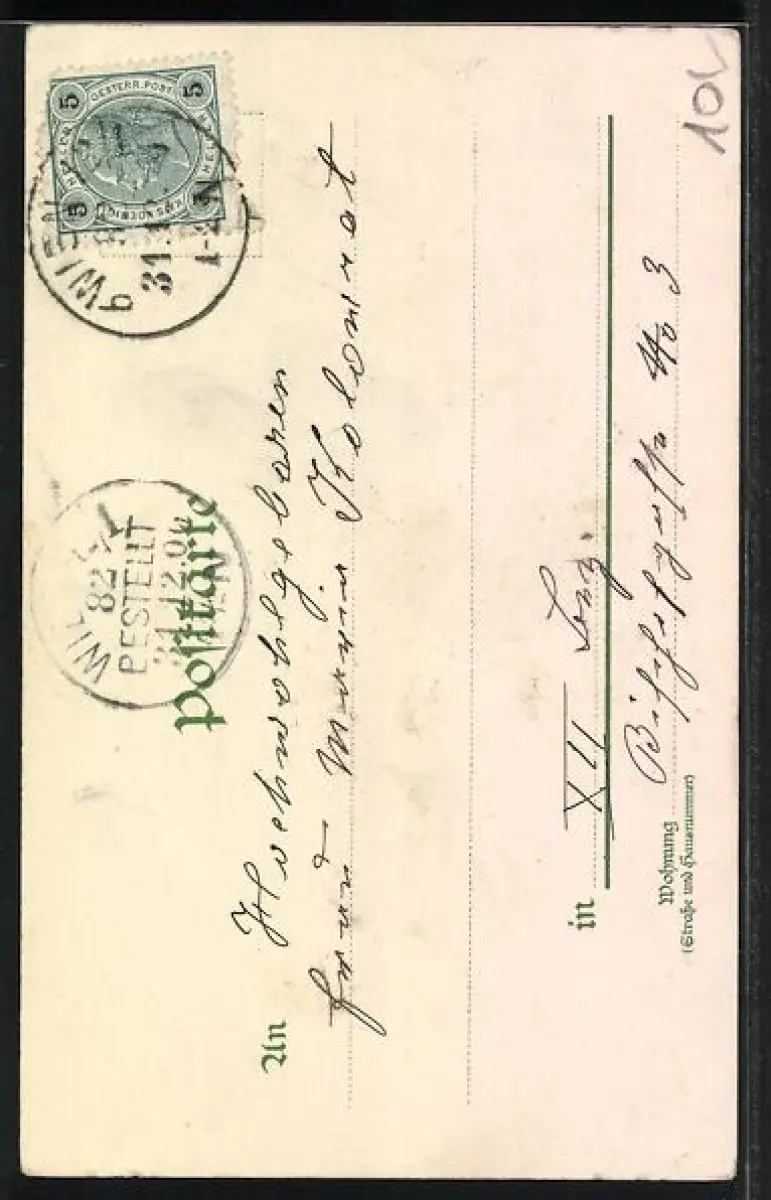 Postkarte
5 OESTERR. POST 5
HELLER HELLER
5 5
WIEN
31.
1-2 N
WIEN
82
BESTELLT
31.12.0
An Hochwohlgeboren
Frau Marie Kolomrat
in XII Lnzg.
Wohnung Bischofgasse No 3
(Straße und Hausnummer)
10L